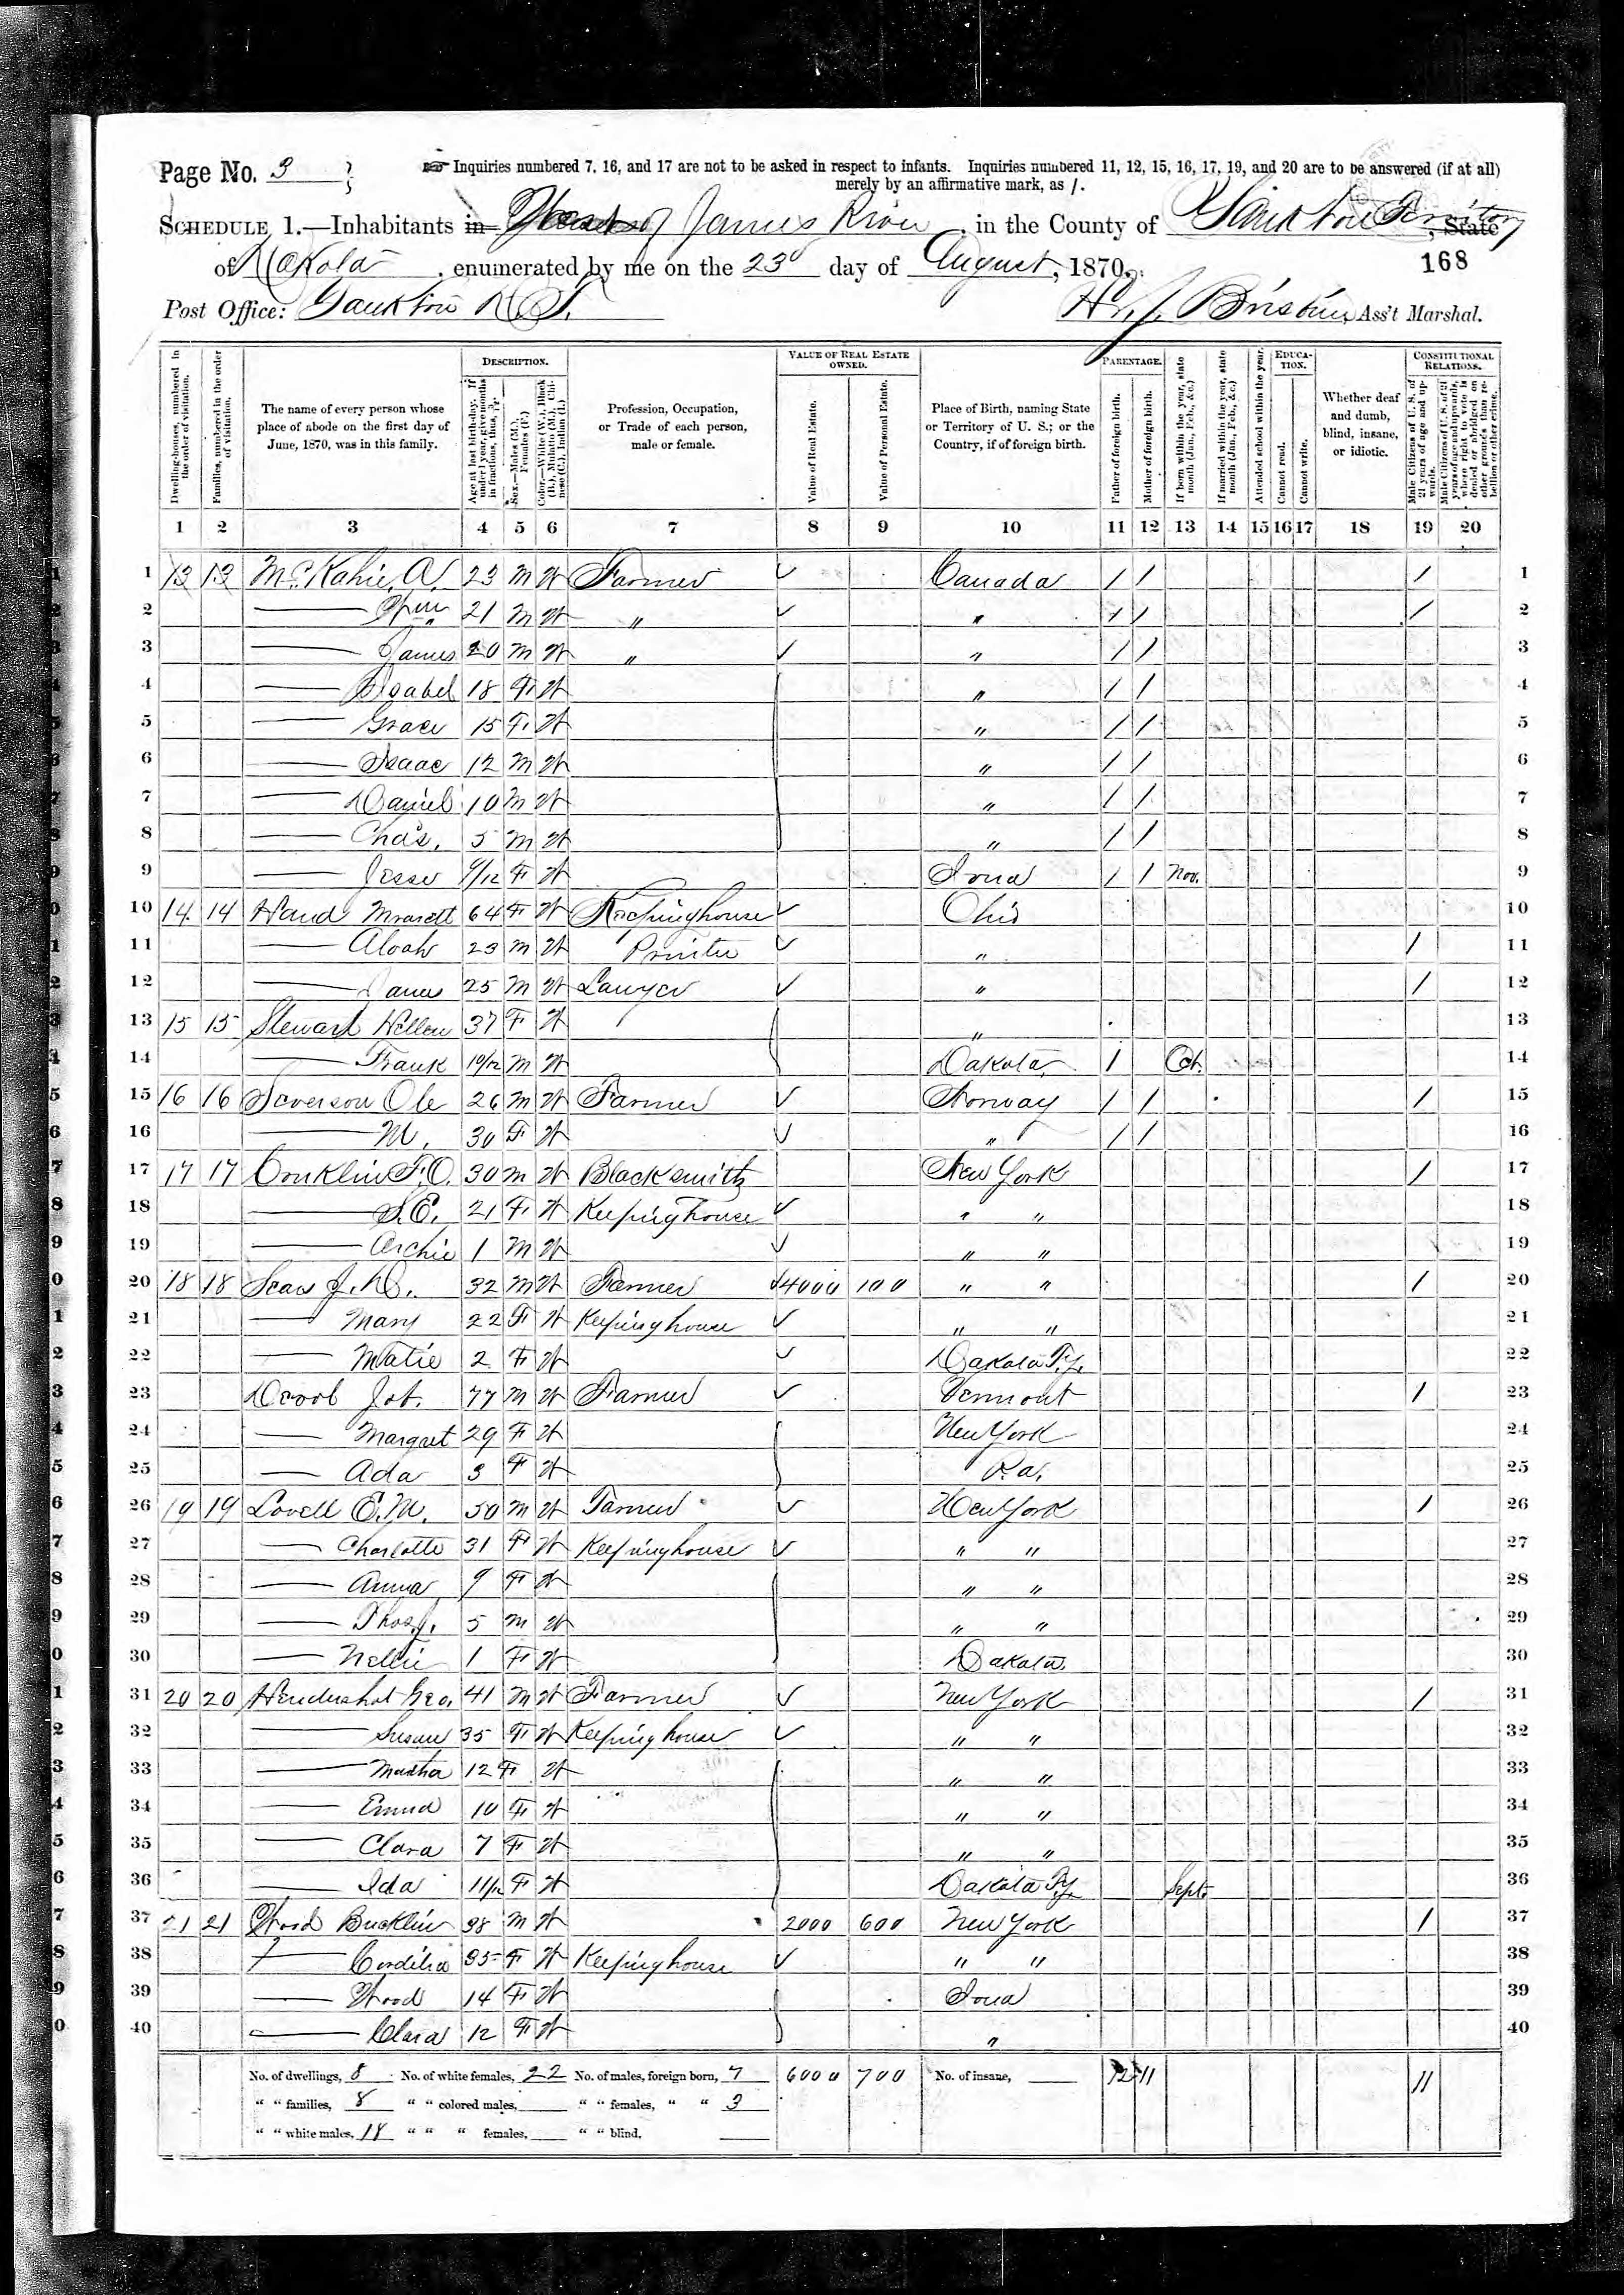 Page No. 3
☞ Inquiries numbered 7, 16, and 17 are not to be asked in respect to infants. Inquiries numbered 11, 12, 15, 16, 17, 19, and 20 are to be answered (if at all)
merely by an affirmative mark, as /.
Schedule 1.—Inhabitants in James River, in the County of Yankton Territory, State
of Dakota, enumerated by me on the 23d day of August, 1870.
168
Post Office: Yankton D.T.
Brisbin, Ass't Marshal.
Dwelling-houses, numbered in the order of visitation.
Families, numbered in the order of visitation.
The name of every person whose place of abode on the first day of June, 1870, was in this family.
Description.
Age at last birth-day. If under 1 year, give months in fractions, thus, 3/12.
Sex.—Males (M.), Females (F.)
Color.—White (W.), Black (B.), Mulatto (M.), Chinese (C.), Indian (I.)
Profession, Occupation, or Trade of each person, male or female.
Value of Real Estate owned.
Value of Real Estate.
Value of Personal Estate.
Place of Birth, naming State or Territory of U. S.; or the Country, if of foreign birth.
Parentage.
Father of foreign birth.
Mother of foreign birth.
If born within the year, state month (Jan., Feb., &c.)
If married within the year, state month (Jan., Feb., &c.)
Attended school within the year.
Education.
Cannot read.
Cannot write.
Whether deaf and dumb, blind, insane, or idiotic.
Constitutional Relations.
Male Citizens of U. S. of 21 years of age and upwards.
Male Citizens of U. S. of 21 years of age and upwards, where right to vote is denied or abridged on other grounds than rebellion or other crime.
1 2 3 4 5 6 7 8 9 10 11 12 13 14 15 16 17 18 19 20
1 13 13 McKahie, A. 23 M W Farmer ✓ Canada / / / 1
2 — 21 M W " ✓ " / / / 2
3 — James 20 M W " ✓ " / / 3
4 — Isabel 18 F W " / / 4
5 — Grace 15 F W " / / 5
6 — Isaac 12 M W " / / 6
7 — Daniel 10 M W " / / 7
8 — Chas. 5 M W " / / 8
9 — Jesse 9/12 F W Iowa / / Nov. 9
10 14 14 Hand 64 F W Keeping house ✓ Ohio 10
11 — Alvah 23 M W Printer ✓ " / 11
12 — James 25 M W Lawyer ✓ " / 12
13 15 15 Stewart Hellen 37 F W " 13
14 — Frank 10/12 M W Dakota / Oct. 14
15 16 16 Severson Ole 26 M W Farmer ✓ Norway / / / 15
16 — M. 30 F W ✓ " / / 16
17 17 17 Conklin F.O. 30 M W Blacksmith New York / 17
18 — S.E. 21 F W Keeping house ✓ " " 18
19 — Archie 1 M W ✓ " " 19
20 18 18 Sears J.D. 32 M W Farmer ✓ 4000 100 " " / 20
21 — Mary 22 F W Keeping house ✓ " " 21
22 — Matie 2 F W ✓ Dakota Ty. 22
23 Job. 77 M W Farmer ✓ Vermont / 23
24 — Margret 29 F W New York 24
25 — Ada 3 F W Pa. 25
26 19 19 Lovell E.M. 50 M W Farmer ✓ New York / 26
27 — Charlotte 31 F W Keeping house ✓ " " 27
28 — Anna 9 F W " " 28
29 — Thos J. 5 M W " " 29
30 — Nellie 1 F W Dakota 30
31 20 20 Hendershot Geo. 41 M W Farmer ✓ New York / 31
32 — Susan 35 F W Keeping house ✓ " " 32
33 — Martha 12 F W " " 33
34 — Emma 10 F W " " 34
35 — Clara 7 F W " " 35
36 — Ida 11/12 F W Dakota Ty. Sept. 36
37 21 21 Wood Bucklin 38 M W 2000 600 New York / 37
38 — Cordelia 35 F W Keeping house ✓ " " 38
39 — Wood 14 F W Iowa 39
40 — Clara 12 F W " 40
No. of dwellings, 8 No. of white females, 22 No. of males, foreign born, 7 6000 700 No. of insane, 12 11 11
" " families, 8 " " colored males, " " females, " " 3
" " white males, 18 " " " females, " " blind,